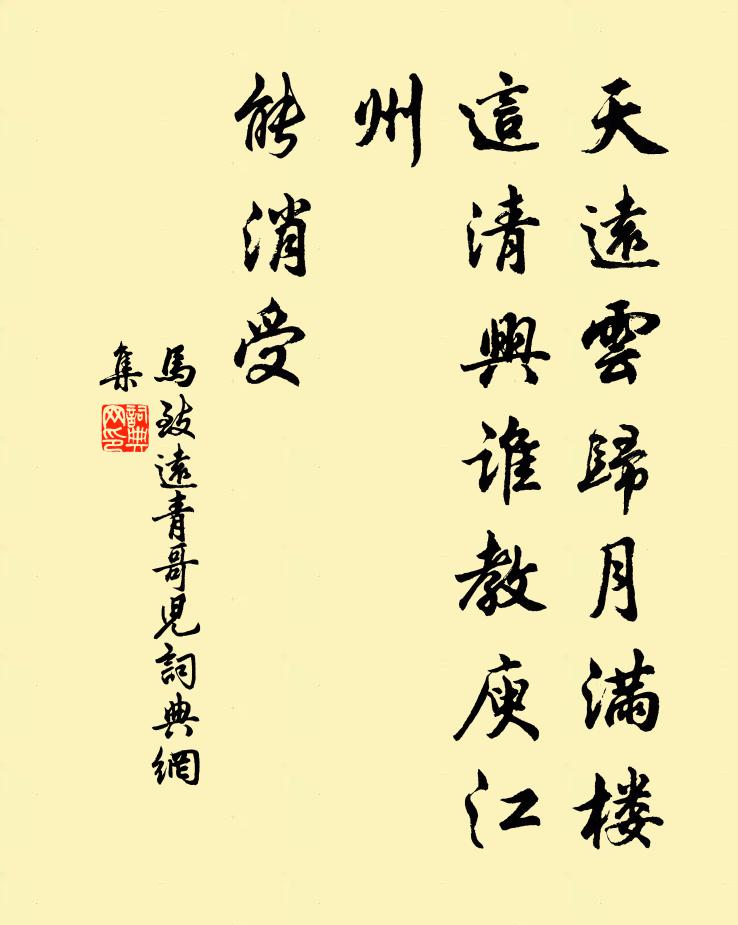 天遠雲歸月滿楼
這清興誰教庾江
州
能消受
馬致遠青哥兒詞典網
集
詞典
网印